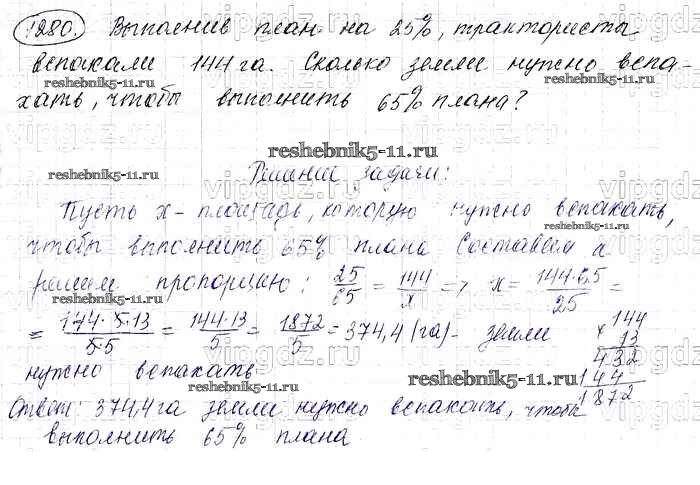 1280. Выполнив план на 25%, трактористы
вспахали 144 га. Сколько земли нужно вспа-
reshebnik5-11.ru
reshebnik5-11.ru
хать, чтобы выполнить 65% плана?
reshebnik5-11.ru
reshebnik5-11.ru
Решение задачи:
reshebnik5-11.ru
Пусть x - площадь, которую нужно вспахать,
reshebnik5-11.ru
чтобы выполнить 65% плана Составим и
решим пропорцию: 25/65 = 144/x => x = 144·65/25 =
reshebnik5-11.ru
= 144·5·13/5·5 = 144·13/5 = 1872/5 = 374,4 (га) - земли
144
× 13
432
144
1872
нужно вспахать
reshebnik5-11.ru
reshebnik5-11.ru
Ответ: 374,4 га земли нужно вспахать, чтобы
выполнить 65% плана